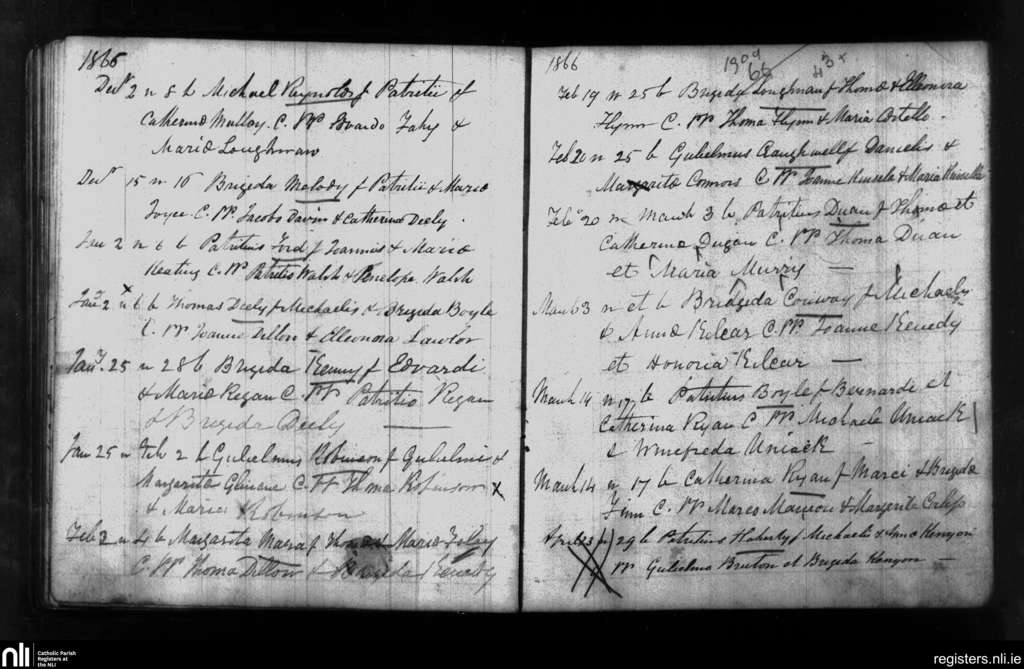 1865
Decr 2 n 8 b Michael Reynolds f Patritii et
Catherinæ Mulloy. C. PP. Fahy &
Mariæ Loughnan
Decr 15 n 16 Brigeda Melody f Patritii & Mariæ
Joyce C. PP. Jacobo Davin & Catherina Deely.
Jan 2 n 6 b Patritius Ford f Joannis & Mariæ
Keating C. PP. Patritio Walsh & Penelope Walsh
Jany 2 n 6 b Thomas Deely f Michaelis & Brigeda Boyle
C. PP Joanne Dillon & Elleonora Lawlor
Jany. 25 n 28 b Brigeda Kenny f Edvardi
& Mariæ Regan C. PP Patritio Regan
& Brigida Deely —
Jan 25 n Feb 2 b Gulielmus Robinson f Gulielmi &
Margaritæ C. PP Thoma Robinson x
& Maria Robinson
Feb 2 n 4 b Margarita Meara f Mariæ Foley
C PP Thoma Dillon & Brigeda Kenedy
1866
1909
66
43 +
Feb 19 n 25 b Brigeda Loughnan f Thomæ & Elleonora
Flynn C. PP. Thoma Flynn & Maria Costello.
Feb 20 n 25 b Gulielmus Caughwell f Danielis &
Margaritæ Connors C PP Joanne Kinsela & Maria Kinsella
Feb. 20 n March 3 b Patritius Duan f Thomæ et
Catherinæ Dugan C. PP Thoma Duan
et Maria Murry —
March 3 n et b Bridgeda Conway f Michaelis
& Annæ Kilcar C. PP. Joanne Kenedy
et Honoria Kilcar —
March 14 n 17 b Patritius Boyle f Bernardi et
Catherina Ryan C PP Michaele Uniack
& Winefreda Uniack —
March 14 n 17 b Catherina Ryan f Marci & Brigida
Finn C. PP. Marco & Margarita
April 23 29 b Patritius Flaherty f Michaelis & Anna Kenyon
PP Gulielmo Bruton et Brigida Kenyon —
nli
Catholic Parish
Registers at
the NLI
registers.nli.ie